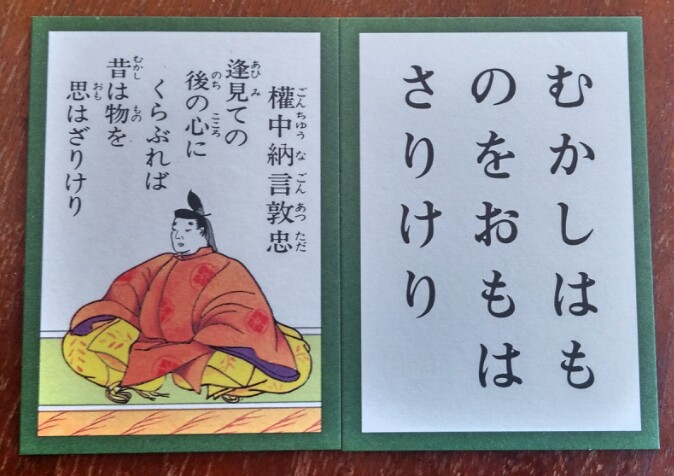 權中納言敦忠
逢見ての
後の心に
くらぶれば
昔は物を
思はざりけり
むかしはも
のをおもは
さりけり